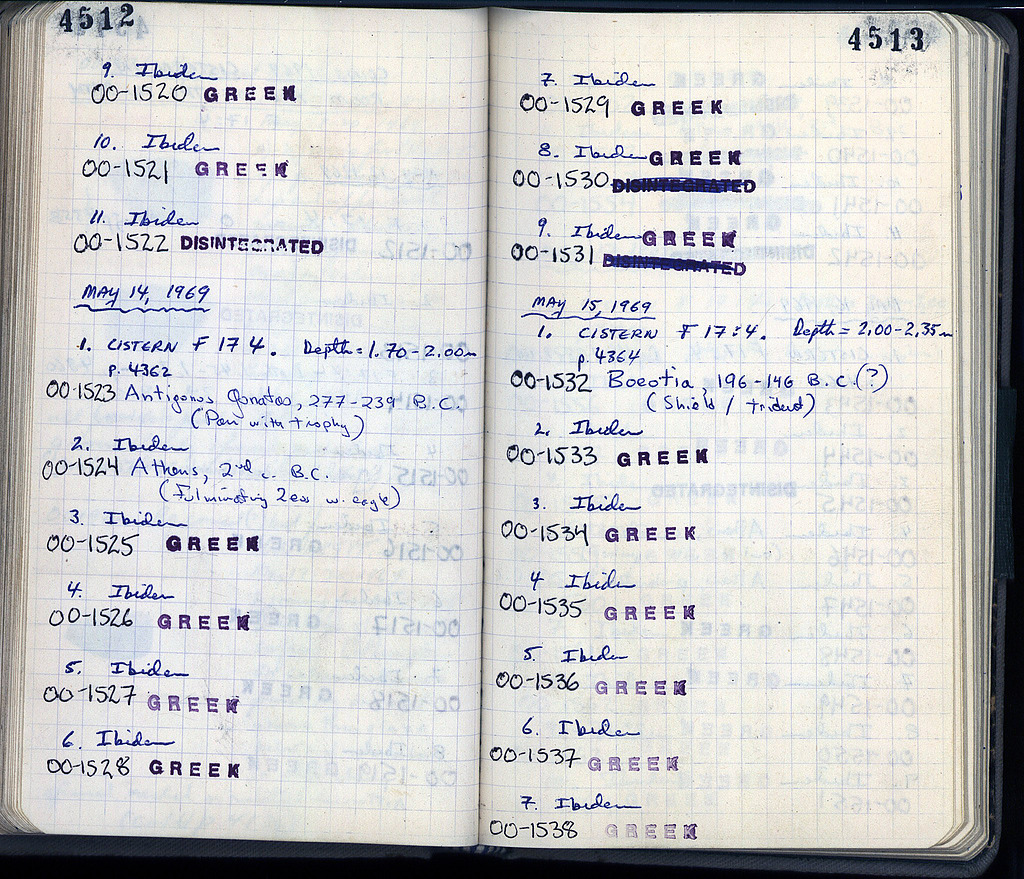 4512
9. Ibidem
OO-1520 GREEK
10. Ibidem
OO-1521 GREEK
11. Ibidem
OO-1522 DISINTEGRATED
MAY 14, 1969
1. CISTERN F 17 4. Depth = 1.70-2.00m
p. 4362
OO-1523 Antigonos Gonatas, 277-239 B.C.
(Pan with trophy)
2. Ibidem
OO-1524 Athens, 2nd c. B.C.
(Fulminating Zeus w. eagle)
3. Ibidem
OO-1525 GREEK
4. Ibidem
OO-1526 GREEK
5. Ibidem
OO-1527 GREEK
6. Ibidem
OO-1528 GREEK
4513
7. Ibidem
OO-1529 GREEK
8. Ibidem GREEK
OO-1530 DISINTEGRATED
9. Ibidem GREEK
OO-1531 DISINTEGRATED
MAY 15, 1969
1. CISTERN F 17:4. Depth = 2.00-2.35m
p. 4364
OO-1532 Boeotia, 196-146 B.C.(?)
(Shield / trident)
2. Ibidem
OO-1533 GREEK
3. Ibidem
OO-1534 GREEK
4 Ibidem
OO-1535 GREEK
5. Ibidem
OO-1536 GREEK
6. Ibidem
OO-1537 GREEK
7. Ibidem
OO-1538 GREEK